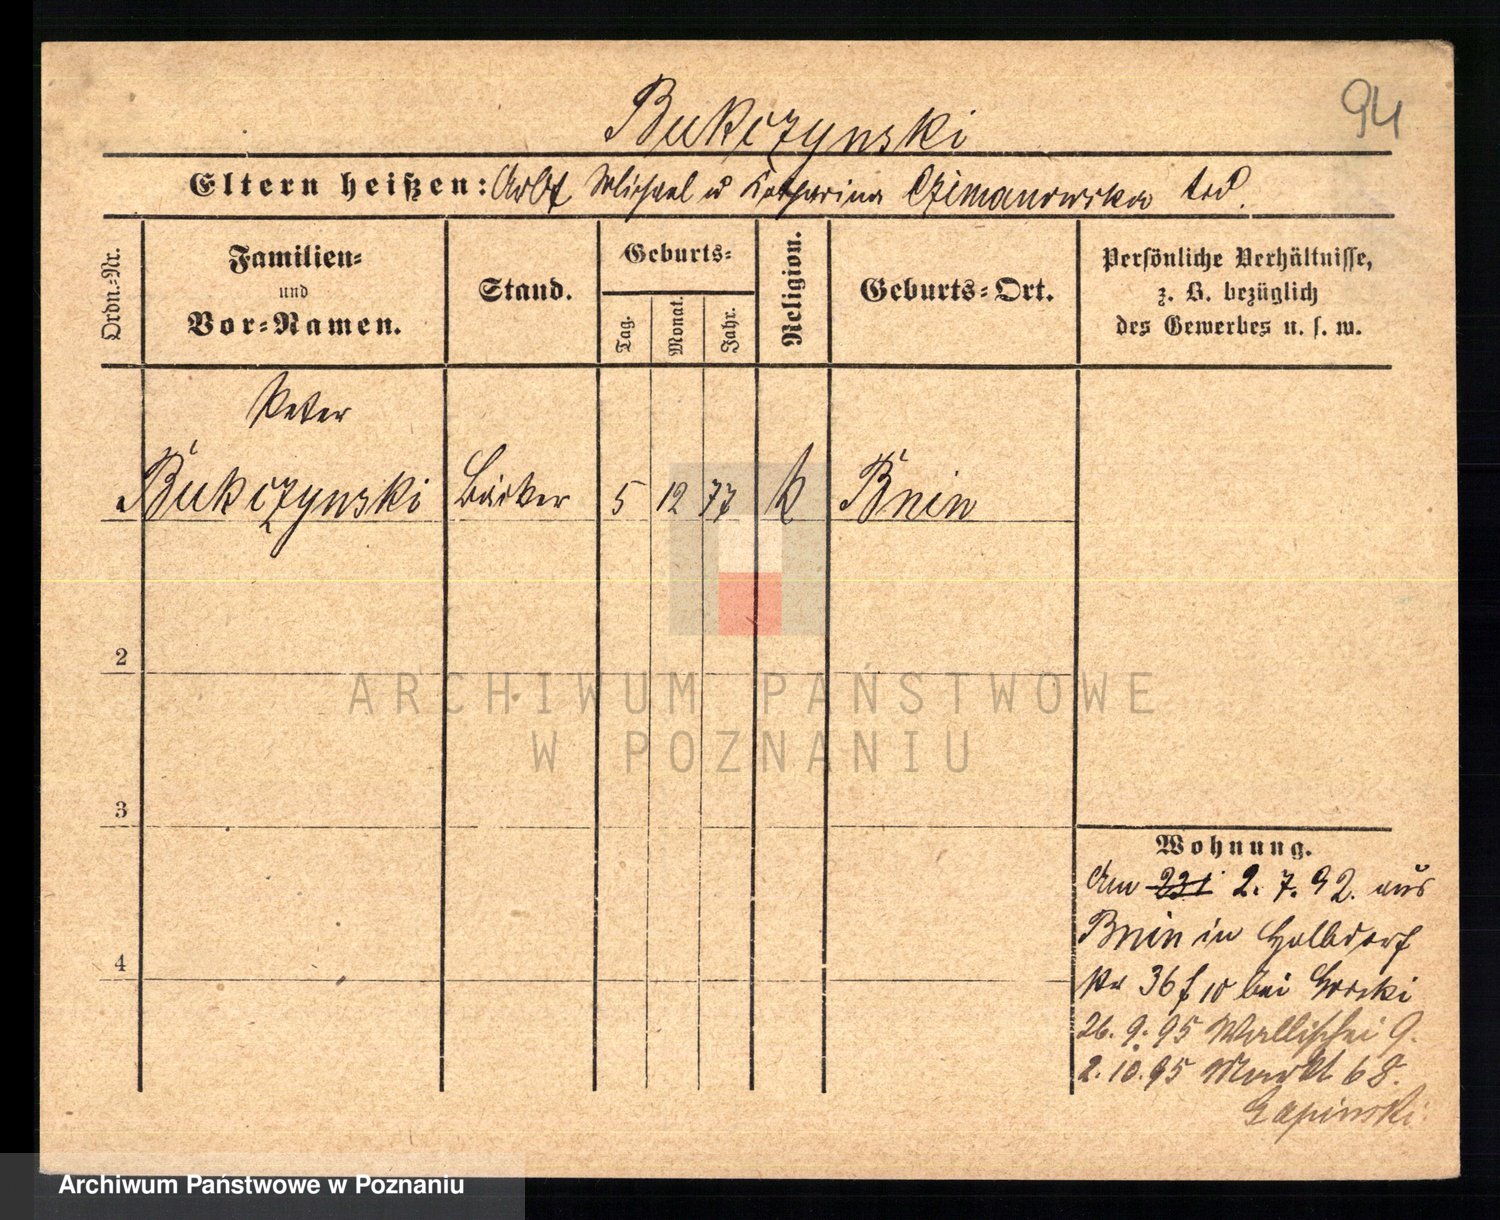 94
Bukczynski
Eltern heißen: Arbt Michael u Katharina Czimanowska tod.
Ordn.-Nr.
Familien-
und
Vor-Namen.
Stand.
Geburts-
Tag.
Monat.
Jahr.
Religion.
Geburts-Ort.
Persönliche Verhältnisse,
z. B. bezüglich
des Gewerbes u. s. w.
Peter
Bukczynski Bäcker 5 12 77 k Bnin
2
3
4
Wohnung.
Am 231 2. 7. 92. aus
Bnin in Halbdorf
Nr 36 f 10 bei Gorski
26. 9. 95 Wallischei 9.
2. 10. 95 Markt 68.
Lapinski
ARCHIWUM PAŃSTWOWE
W POZNANIU
Archiwum Państwowe w Poznaniu